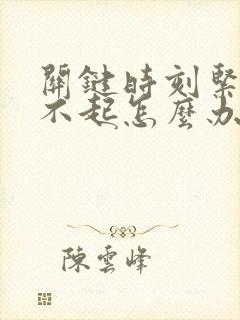 關鍵時刻緊
不起怎麼办
陳雲峰